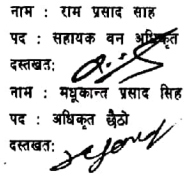 नाम : राम प्रसाद साह
पद : सहायक वन अधिकृत
दस्तखत:
नाम : मधुकान्त प्रसाद सिह
पद : अधिकृत छैठौ
दस्तखत: